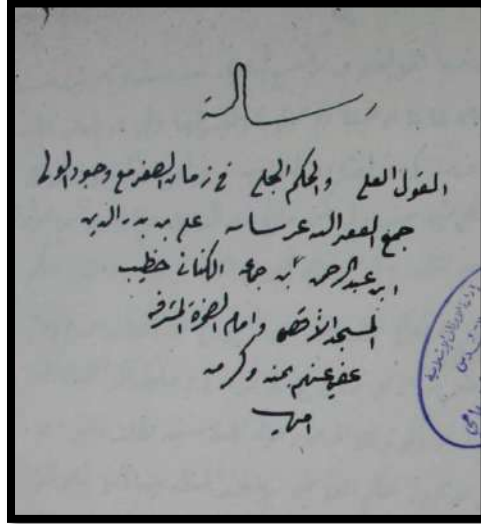 رسالة
القول العلي والحكم الجلي في زمان الصغر مع وجود الولي
جمع الفقير الى عز شانه علي بن بدر الدين
ابن عبدالرحمن ابن جماعة الكناني خطيب
المسجد الأقصى وامام الصخرة المشرفه
عفي عنهم بمنه وكرمه
امين